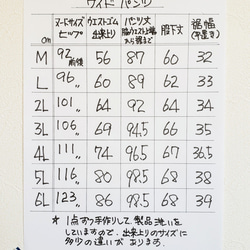 ワイド パンツ
cm ヌードサイズ ヒップ ウエストゴム 出来上り パンツ丈 脇ウエスト上端から裾まで 股下丈 裾幅 (平置き)
M 92 前後 56 87 60 32
L 96 〃 60 89 62 33
2L 101 〃 64 92 64 34
3L 106 〃 69 94.5 66 35
4L 111 〃 74 96.5 67 36.5
5L 116 〃 80 98.5 68 38
6L 123 〃 86 98.5 68 39
* 1点ずつ手作りして製品洗いを
していますので、出来上りのサイズに
多少の違いがあります。